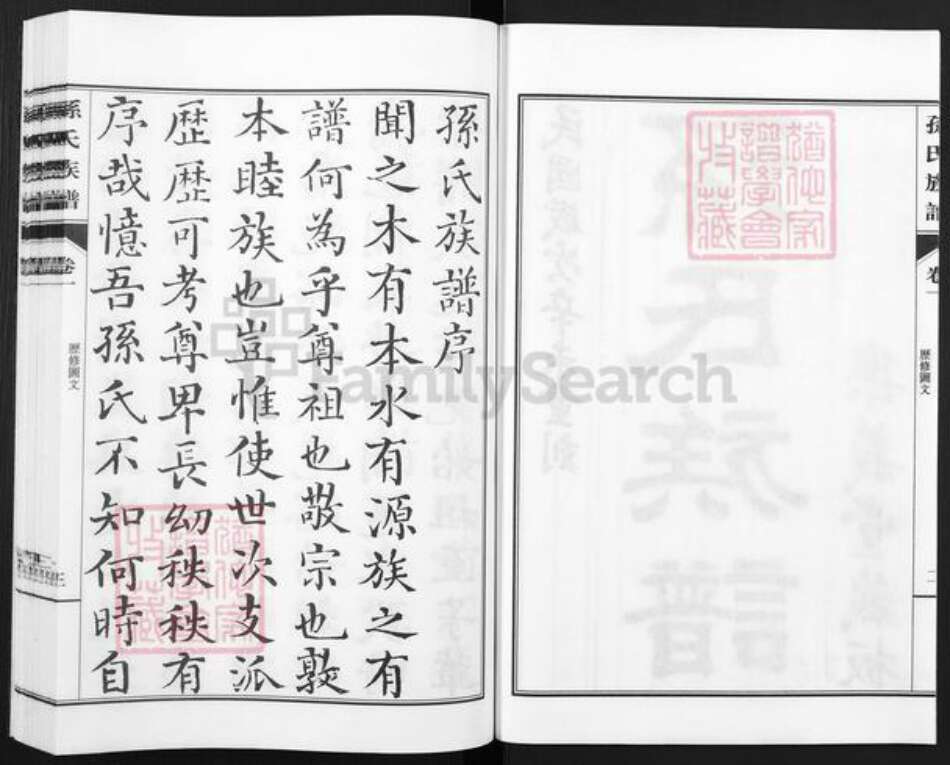 孫氏族譜
卷一
歷修圖文
二
猶他家
譜學會
收藏
孫氏族譜序
聞之木有本水有源族之有
譜何為乎尊祖也敬宗也敦
本睦族也豈惟使世次支派
歷歷可考尊卑長幼秩秩有
序哉憶吾孫氏不知何時自
猶他家
譜學會
收藏
孫氏族譜
卷一
歷修圖文
三
FamilySearch